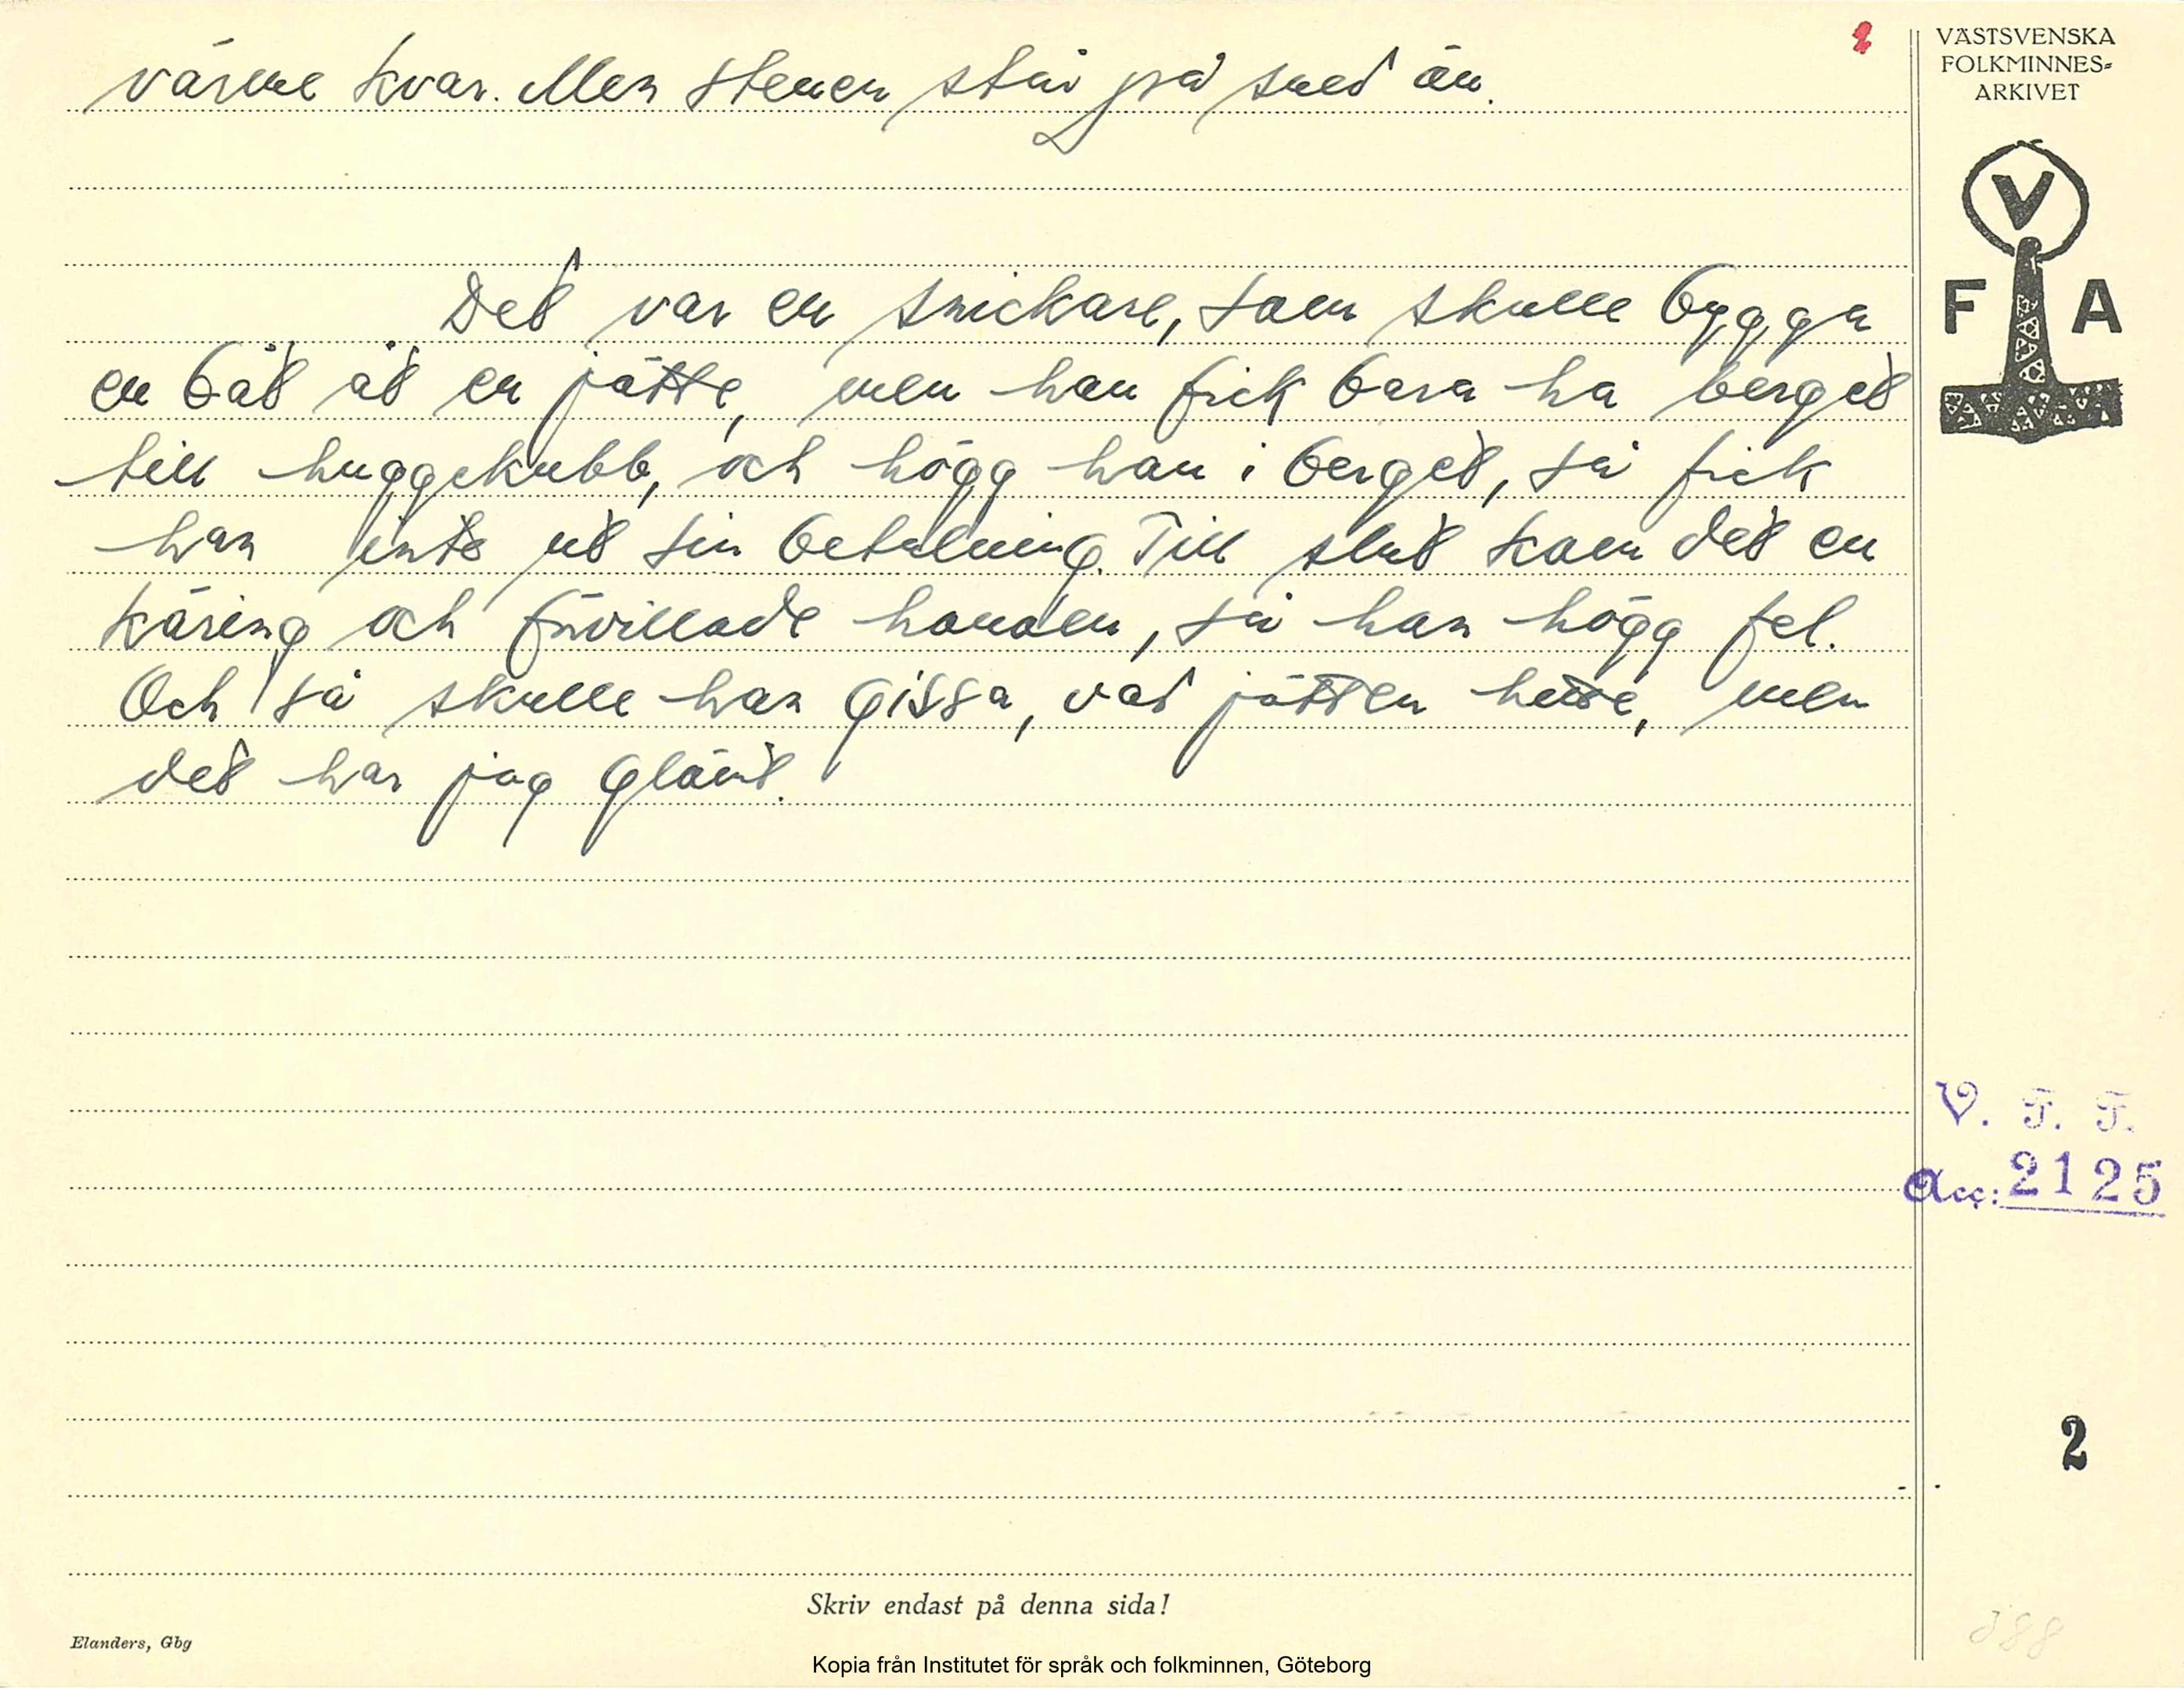 2
VÄSTSVENSKA
FOLKMINNES=
ARKIVET
V
F A
värme kvar. Men stenen står på sned än.
Det var en snickare, som skulle bygga
en båt åt en jätte, men han fick bara ha berget
till huggekubb, och högg han i berget, så fick
han inte ut sin betalning. Till slut kom det en
käring och förvillade honom, så han högg fel.
Och så skulle han gissa, vad jätten hette, men
det har jag glömt.
V. F. F.
Acc: 2125
2
Skriv endast på denna sida!
388
Elanders, Gbg
Kopia från Institutet för språk och folkminnen, Göteborg